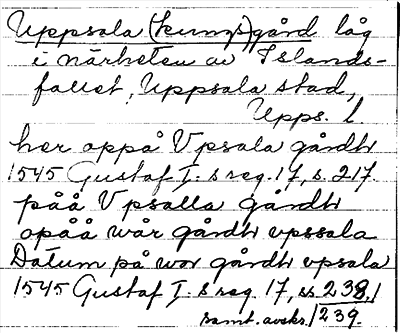 Uppsala (kungs)gård låg
i närheten av Islands-
fallet, Uppsala stad,
Upps. l
her oppå Vpsala gårdh
1545 Gustaf I:s reg. 17, s. 217.
påå Vpsalla gårdh
opåå wår gårdh vpssala
Datum på wor gårdh vpsala
1545 Gustaf I:s reg. 17, ss 238, 1
samt. avskr. 1 239.